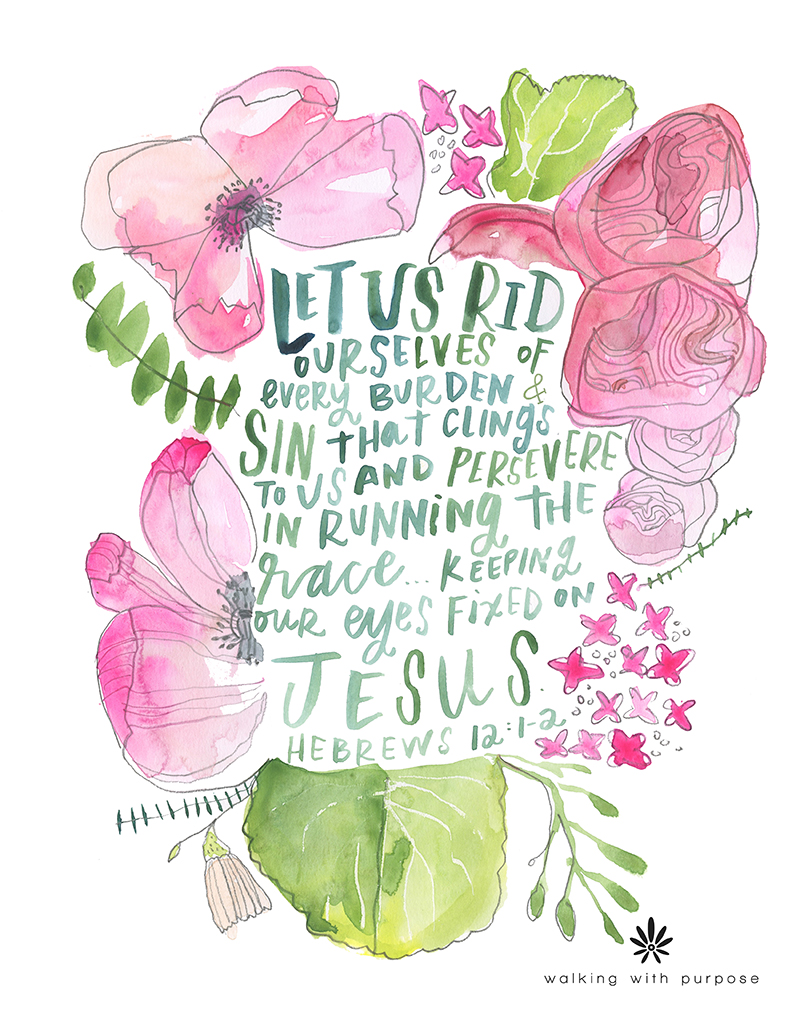 LET US RID
OURSELVES OF
eveRy BURDEN &
SIN tHat CLINGS
TO US AND PERSEVERE
IN RUNNINg tHE
race... KEEPING
OUR eyes FIXED ON
JESUS.
HEBREWS 12:1-2
walking with purpose